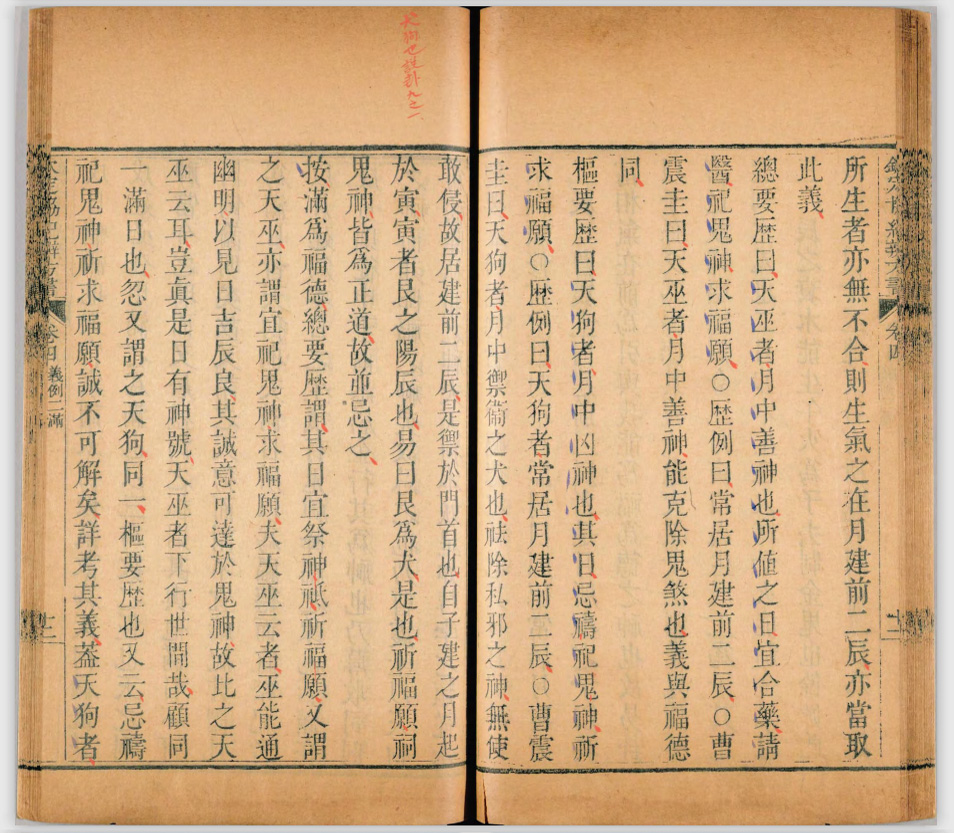 所生者亦無不合則生氣之在月建前二辰亦當取
此義
總要歷曰天巫者月中善神也所値之日宜合藥請
醫祀鬼神求福願○歷例曰常居月建前二辰○曹
震圭曰天巫者月中善神能克除鬼煞也義與福德
同
樞要歷曰天狗者月中凶神也其日忌禱祀鬼神祈
求福願○歷例曰天狗者常居月建前二辰○曹震
圭曰天狗者月中禦衞之犬也祛除私邪之神無使
敢侵故居建前二辰是禦於門首也自子建之月起
於寅寅者艮之陽辰也易曰艮爲犬是也祈福願祠
鬼神皆爲正道故並忌之
按滿爲福德總要歷謂其日宜祭神祇祈福願又謂
之天巫亦謂宜祀鬼神求福願夫天巫云者巫能通
幽明以見日吉辰良其誠意可達於鬼神故比之天
巫云耳豈眞是日有神號天巫者下行世間哉顧同
一滿日也忽又謂之天狗同一樞要歷也又云忌禱
祀鬼神祈求福願誠不可解矣詳考其義葢天狗者
卷四 義例二 滿
卷四
犬狗也說卦九之一